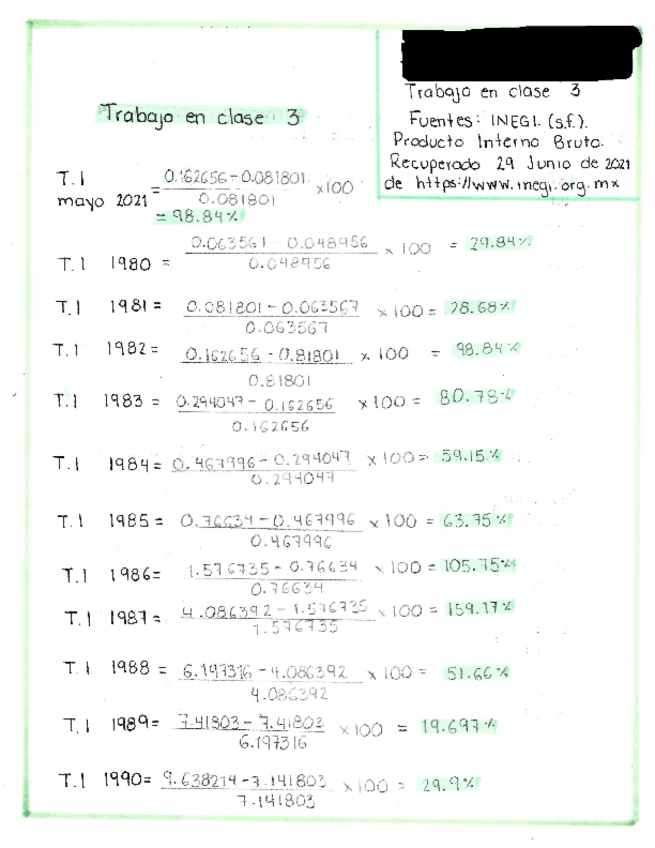 Trabajo en clase 3
Fuentes: INEGI. (s.f.).
Producto Interno Bruto.
Recuperado 29 Junio de 2021
de https://www.inegi.org.mx
Trabajo en clase 3
T.I mayo 2021 = 0.162656-0.081801 / 0.081801 x100
= 98.84%
T.I 1980 = 0.063561 - 0.048956 / 0.048956 x 100 = 29.84%
T.I 1981 = 0.081801-0.063567 / 0.063567 x 100 = 28.68%
T.I 1982 = 0.162656 - 0.81801 / 0.81801 x 100 = 98.84%
T.I 1983 = 0.294047 - 0.162656 / 0.162656 x 100 = 80.78%
T.I 1984 = 0.467996 - 0.294047 / 0.294047 x 100 = 59.15%
T.I 1985 = 0.76634 - 0.467996 / 0.467996 x 100 = 63.75%
T.I 1986 = 1.576735 - 0.76634 / 0.76634 x 100 = 105.75%
T.I 1987 = 4.086392 - 1.576735 / 1.576735 x 100 = 159.17%
T.I 1988 = 6.197316 - 4.086392 / 4.086392 x 100 = 51.66%
T.I 1989 = 7.41803 - 7.41803 / 6.197316 x 100 = 19.697%
T.I 1990 = 9.638214 - 7.141803 / 7.141803 x 100 = 29.9%